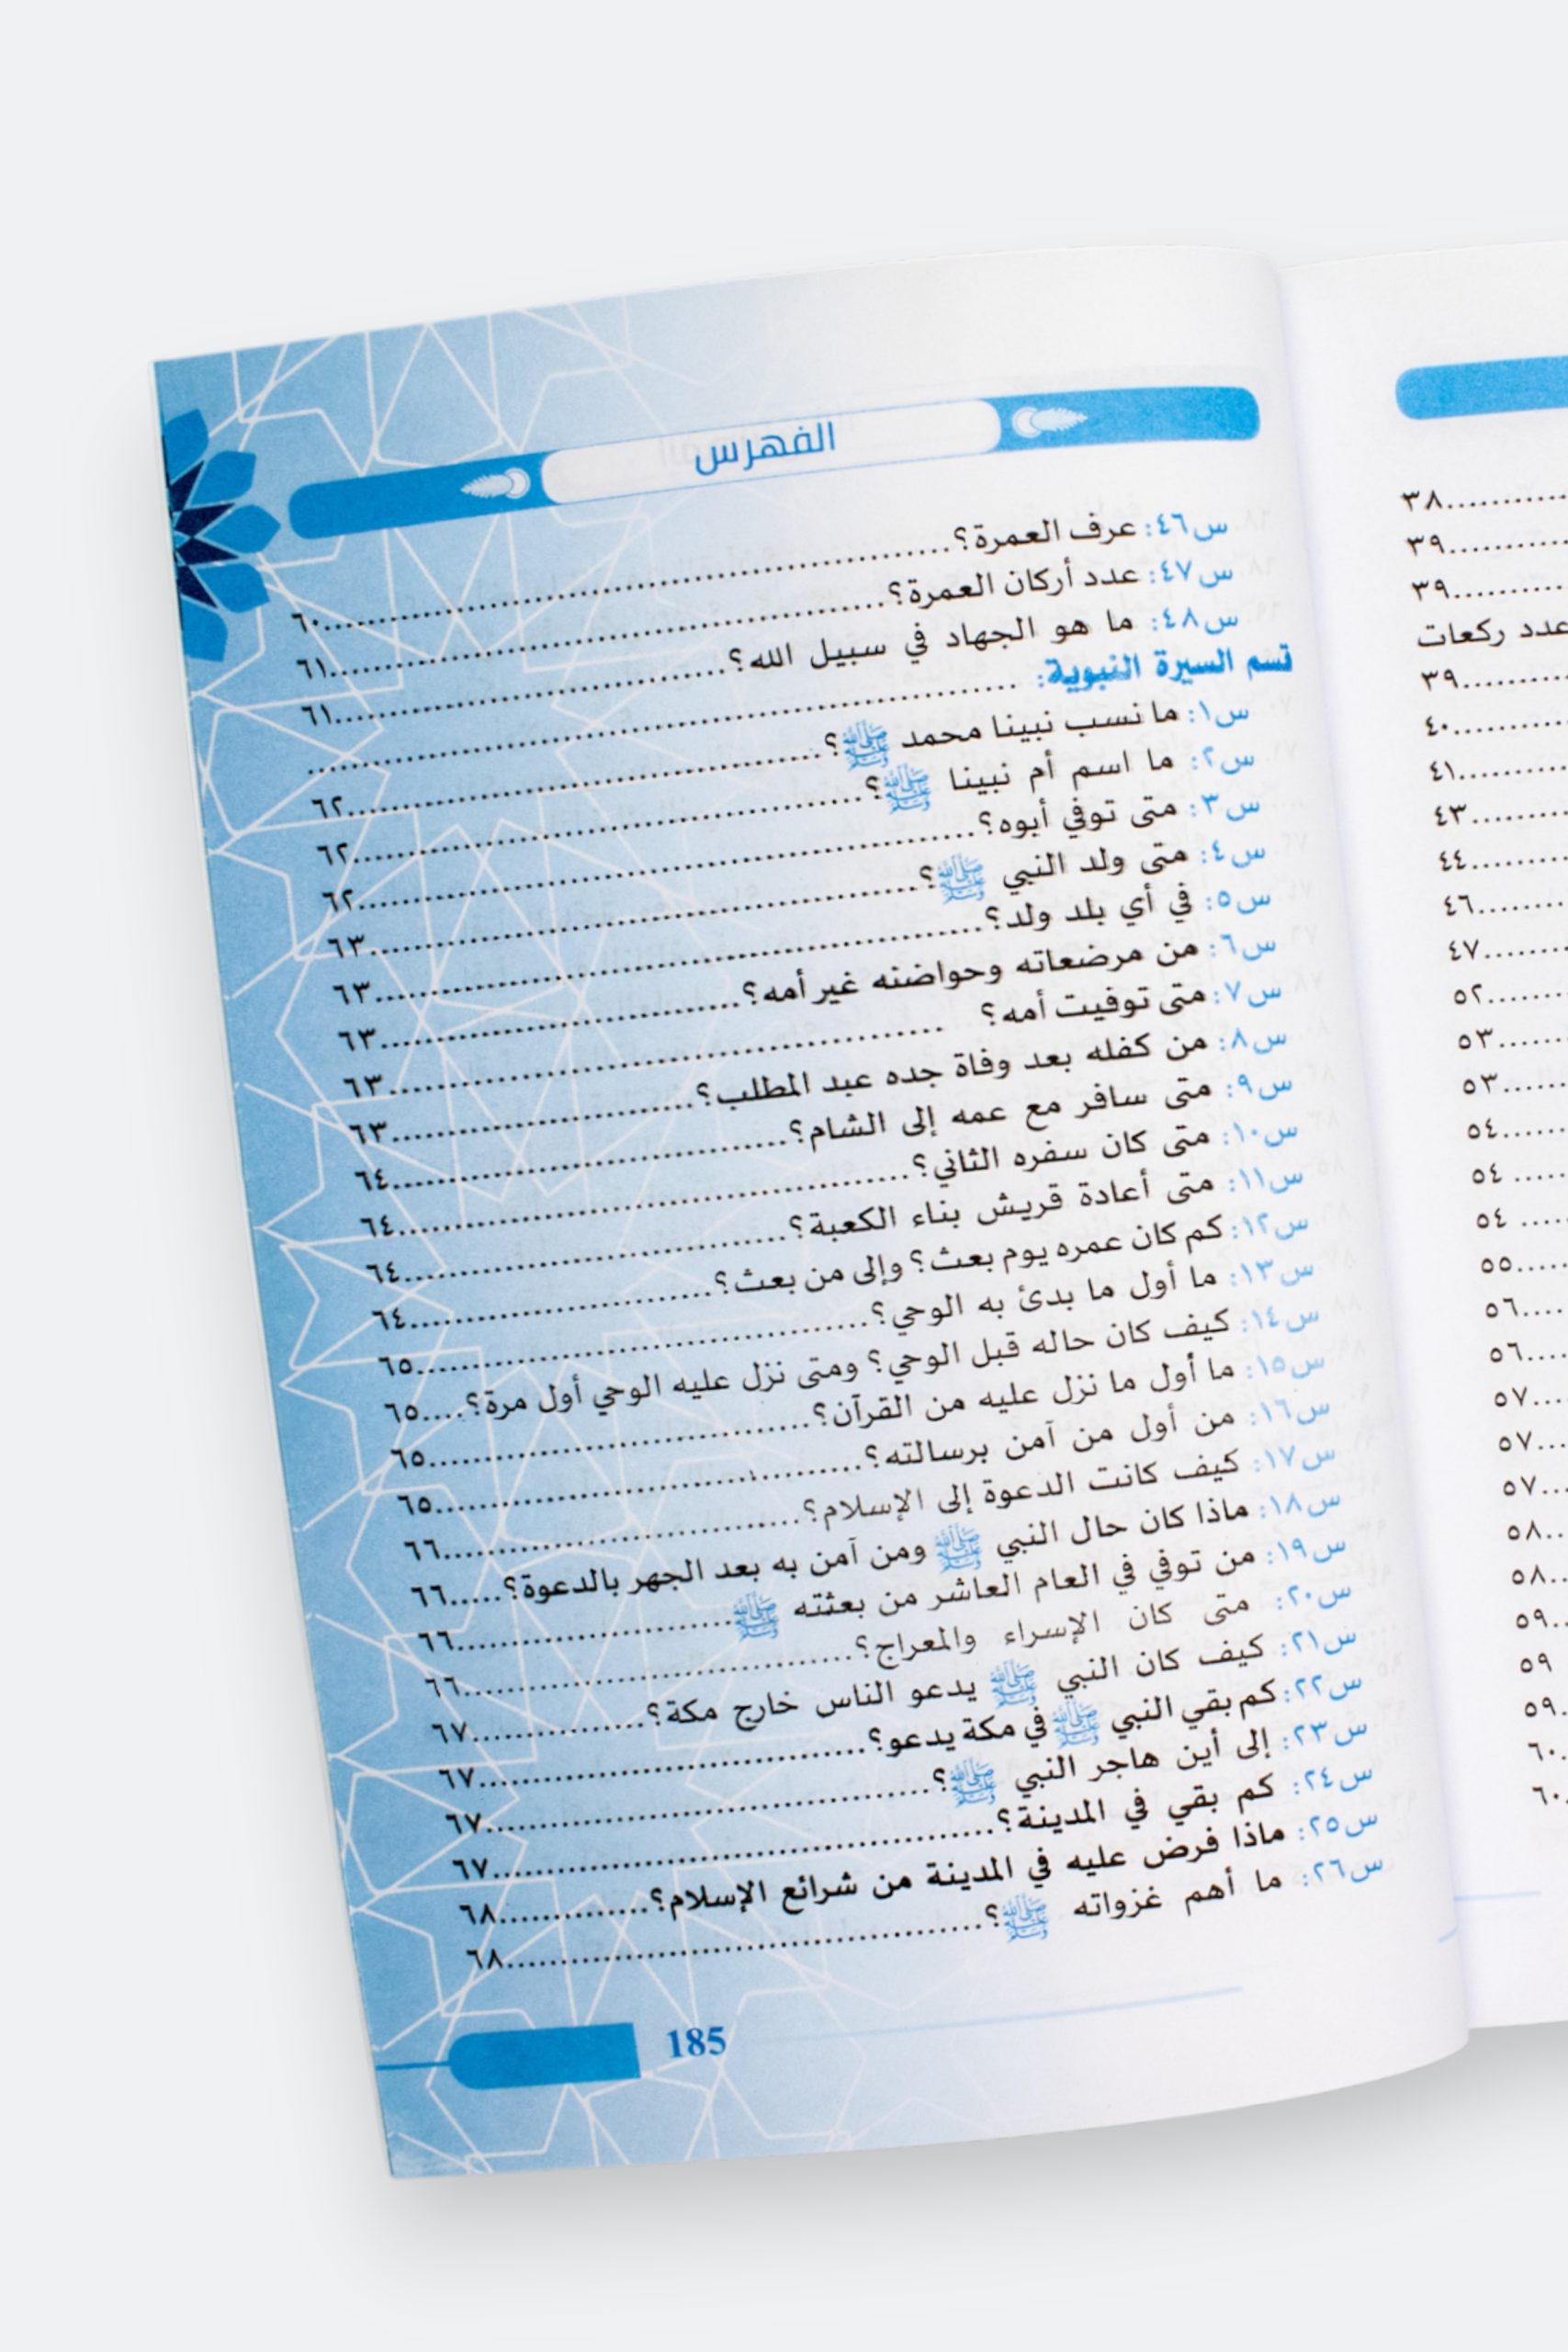 الفهرس
س٤٦: عرف العمرة؟..........٦٠
س٤٧: عدد أركان العمرة؟..........٦١
س٤٨: ما هو الجهاد في سبيل الله؟..........٦١
قسم السيرة النبوية: ..........
س١: ما نسب نبينا محمد ﷺ؟..........٦٢
س٢: ما اسم أم نبينا ﷺ؟..........٦٢
س٣: متى توفي أبوه؟..........٦٢
س٤: متى ولد النبي ﷺ؟..........٦٣
س٥: في أي بلد ولد؟..........٦٣
س٦: من مرضعاته وحواضنه غير أمه؟..........٦٣
س٧: متى توفيت أمه؟ ..........٦٣
س٨: من كفله بعد وفاة جده عبد المطلب؟..........٦٣
س٩: متى سافر مع عمه إلى الشام؟..........٦٤
س١٠: متى كان سفره الثاني؟..........٦٤
س١١: متى أعادة قريش بناء الكعبة؟..........٦٤
س١٢: كم كان عمره يوم بعث؟ وإلى من بعث؟..........٦٤
س١٣: ما أول ما بدئ به الوحي؟..........٦٥
س١٤: كيف كان حاله قبل الوحي؟ ومتى نزل عليه الوحي أول مرة؟....٦٥
س١٥: ما أول ما نزل عليه من القرآن؟..........٦٥
س١٦: من أول من آمن برسالته؟..........٦٥
س١٧: كيف كانت الدعوة إلى الإسلام؟..........٦٦
س١٨: ماذا كان حال النبي ﷺ ومن آمن به بعد الجهر بالدعوة؟.....٦٦
س١٩: من توفي في العام العاشر من بعثته ﷺ..........٦٦
س٢٠: متى كان الإسراء والمعراج؟..........٦٦
س٢١: كيف كان النبي ﷺ يدعو الناس خارج مكة؟..........٦٧
س٢٢: كم بقي النبي ﷺ في مكة يدعو؟..........٦٧
س٢٣: إلى أين هاجر النبي ﷺ؟..........٦٧
س٢٤: كم بقي في المدينة؟..........٦٧
س٢٥: ماذا فرض عليه في المدينة من شرائع الإسلام؟..........٦٨
س٢٦: ما أهم غزواته ﷺ؟..........٦٨
185
..........٣٨
..........٣٩
..........٣٩
عدد ركعات
..........٣٩
..........٤٠
..........٤١
..........٤٣
..........٤٤
..........٤٦
..........٤٧
..........٥٢
..........٥٣
..........٥٣
..........٥٤
.......... ٥٤
.......... ٥٤
..........٥٥
....٥٦
....٥٦
...٥٧
...٥٧
...٥٧
..٥٨
..٥٨
..٥٩
٥٩
.٥٩
.٦٠
.٦٠